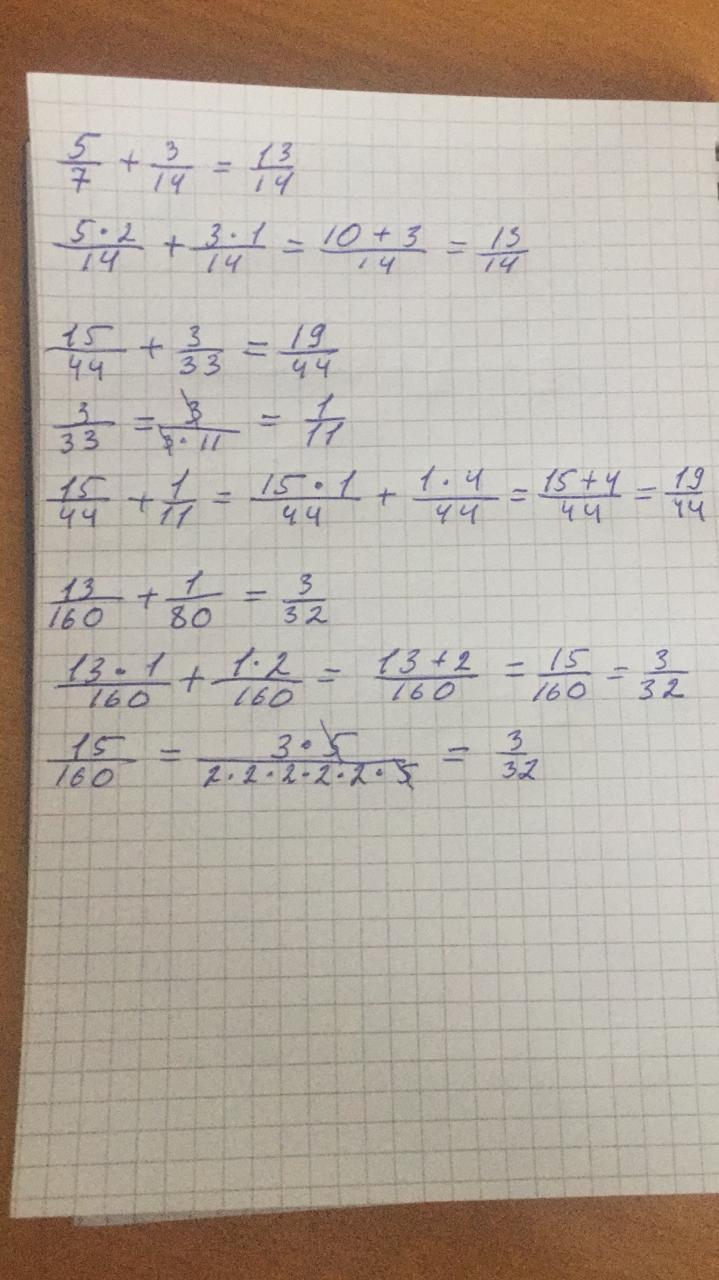 5/7 + 3/14 = 13/14
5·2/14 + 3·1/14 = 10+3/14 = 13/14
15/44 + 3/33 = 19/44
3/33 = 3/3·11 = 1/11
15/44 + 1/11 = 15·1/44 + 1·4/44 = 15+4/44 = 19/44
13/160 + 1/80 = 3/32
13·1/160 + 1·2/160 = 13+2/160 = 15/160 = 3/32
15/160 = 3·5/2·2·2·2·2·5 = 3/32